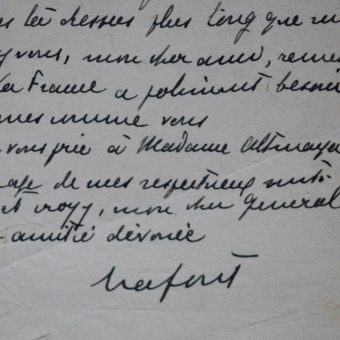 là dessus plus long que
vous, mon cher ami,
La France a joliment besoin
comme vous
vous prie à Madame Altmayer
de mes respectueux
et croyez, mon cher général
amitié dévouée